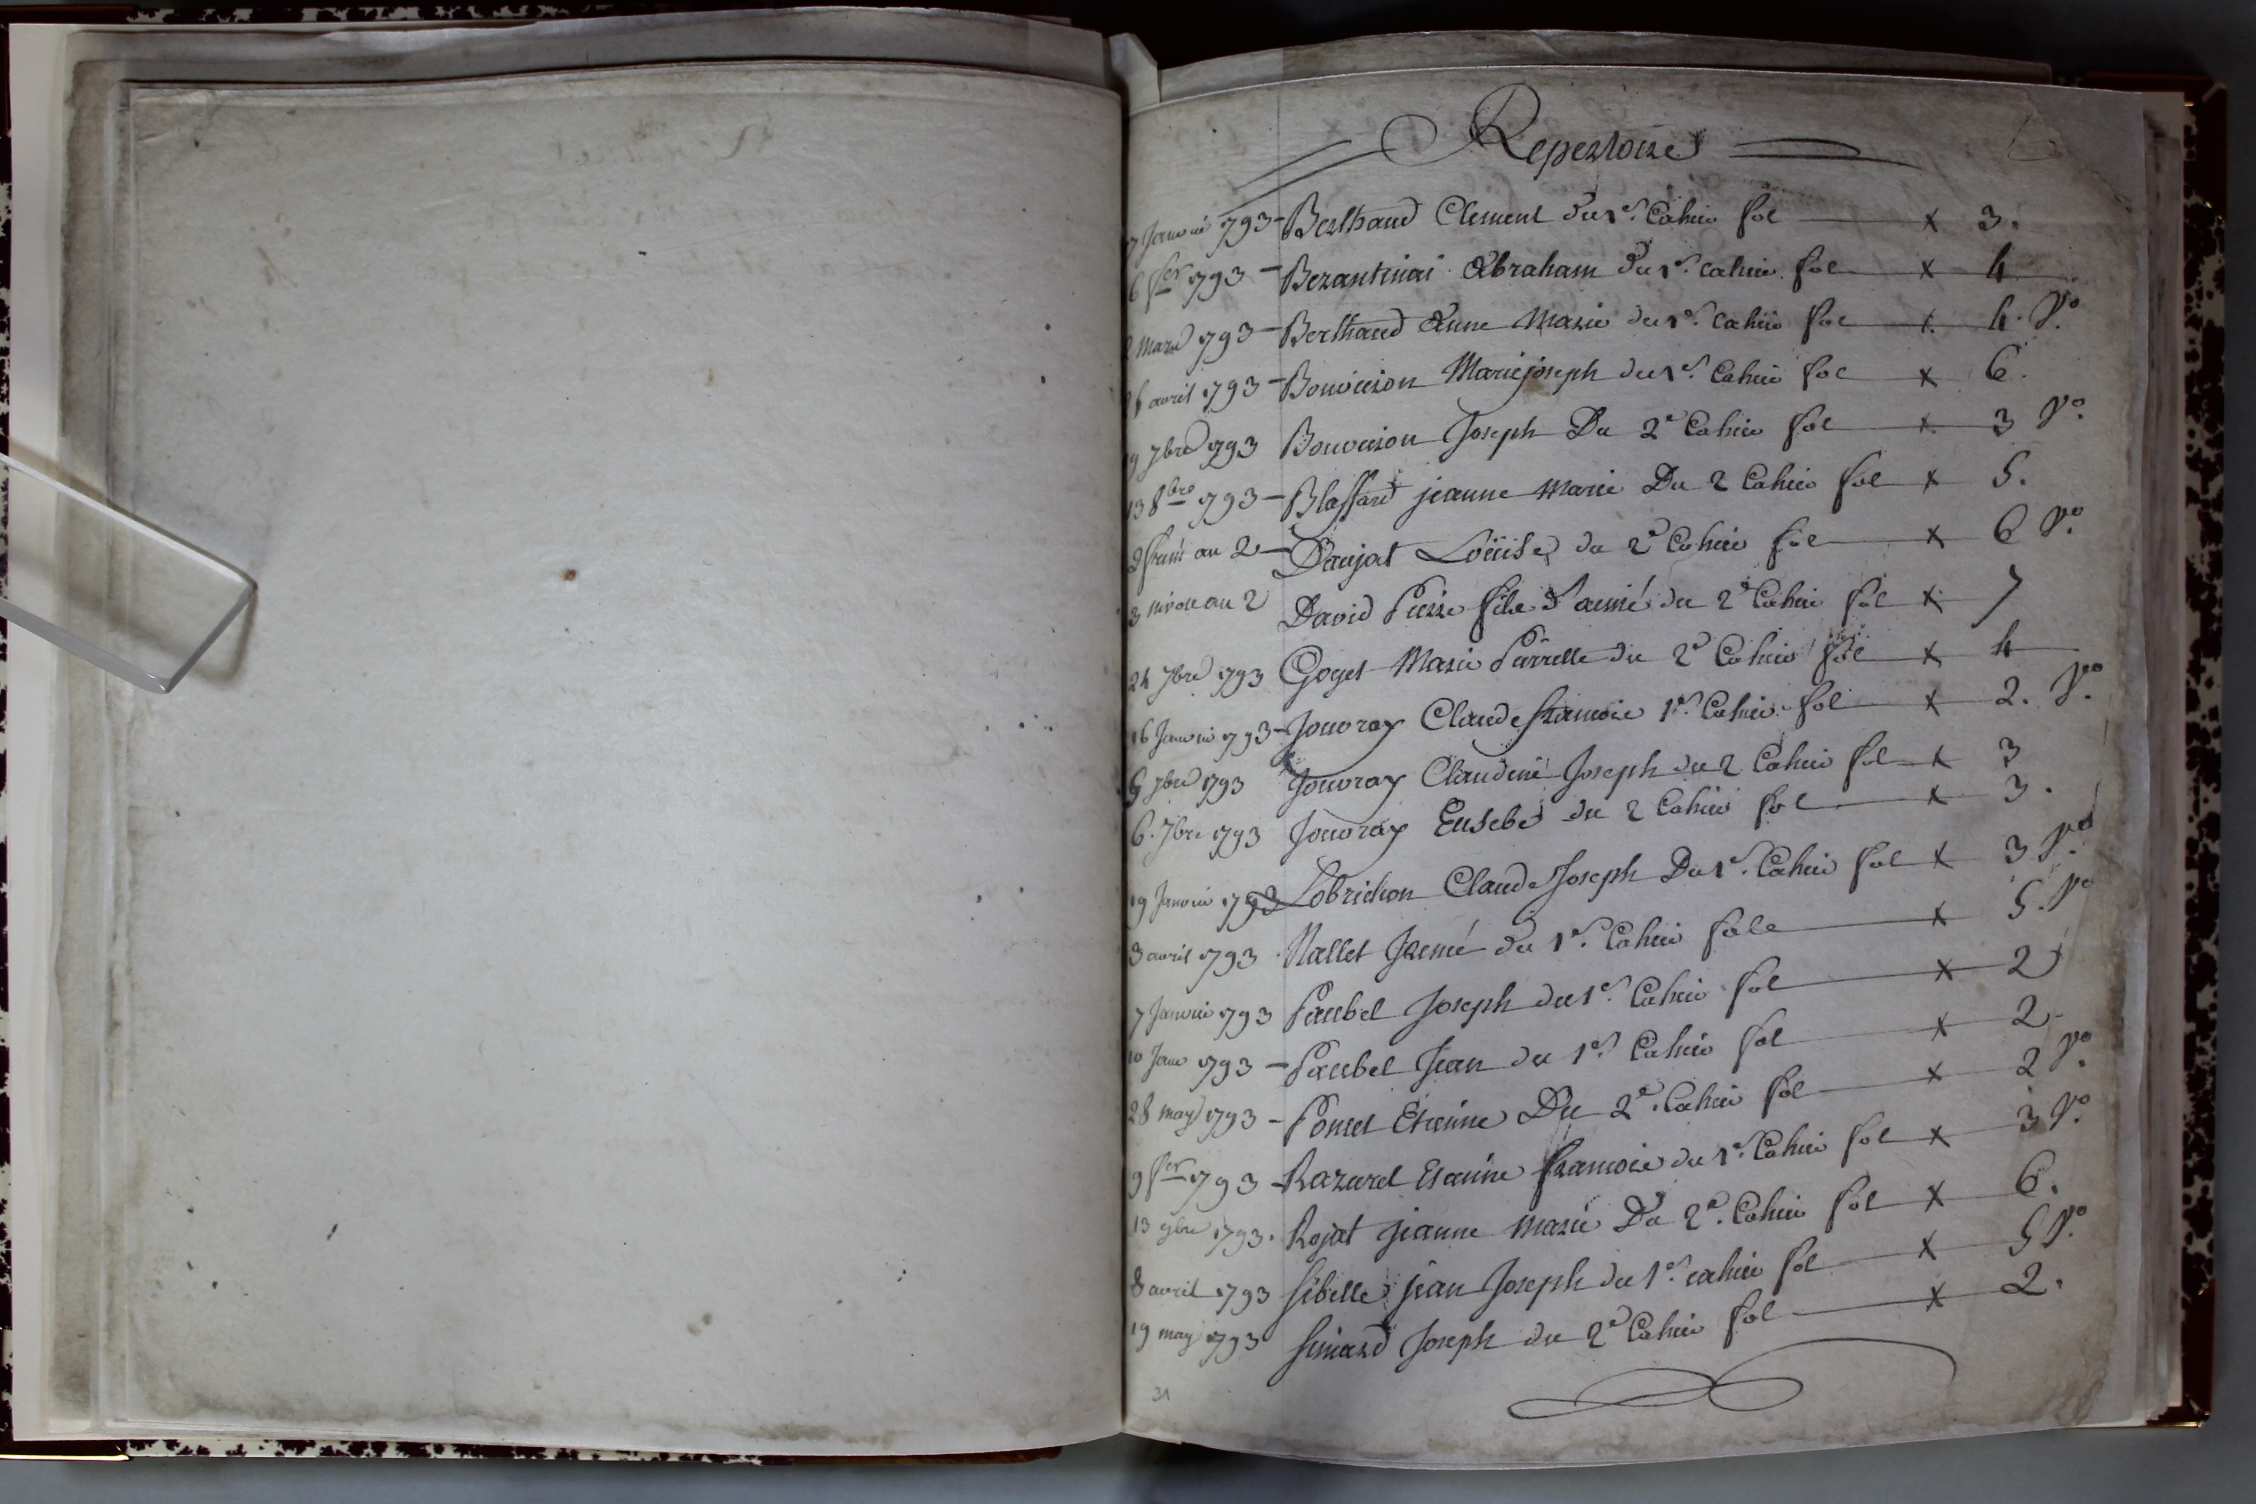 Repertoire
7 Janvié 1793 - Berthaud Clement du 1er. Cahier fol x 3.
6 fer 1793 - Bezantinai Abraham du 1er. cahier fol x 4
2 Mars 1793 - Berthaud Anne Marie du 1er. cahier fol x 4. Vo.
26 avril 1793 - Bouvieron Marie joseph du 1er. Cahier fol x 6.
9 7bre 1793 Bouvieron Joseph Du 2e Cahier fol x 3 Vo.
13 8bre 1793 - Blassard jeanne marie Du 2 Cahier fol x 5.
2 frim an 2 - Daujat Loüise du 2e Cahier fol x 6 Vo.
3 nivose an 2 David Pierre fils d'aimé du 2e Cahier fol x 7
24 7bre 1793 Goyet Marie Pierrelle du 2e Cahier fol x 4
16 Janvié 1793 - Jouvray Claude francoise 1er. Cahier fol x 2. Vo.
5 7bre 1793 Jouvray Claudine Joseph du 2 Cahier fol x 3
6. 7bre 1793 Jouvray Eusebe du 2 Cahier fol x 3.
19 Janvié 1793 Lobrichon Claude Joseph Du 1er. Cahier fol x 3 Vo.
3 avril 1793 Nallet Jremé du 1er. Cahier fole x 5. Vo
7 Janvié 1793 Paubel Joseph du 1er. Cahier fol x 2
10 Janv 1793 - Paubel Jean du 1er. Cahier fol x 2.
28 may 1793 - Poncet Etienne Du 2e. Cahier fol x 2 Vo.
9 fer 1793 - Razurel francoise du 1er. Cahier fol x 3 Vo.
13 9bre 1793. Rojat jeanne marie Du 2e. Cahier fol x 6.
8 avril 1793 Sibelle jean Joseph du 1er. cahier fol x 5 Vo.
19 may 1793 Simard Joseph du 2e Cahier fol x 2.
31